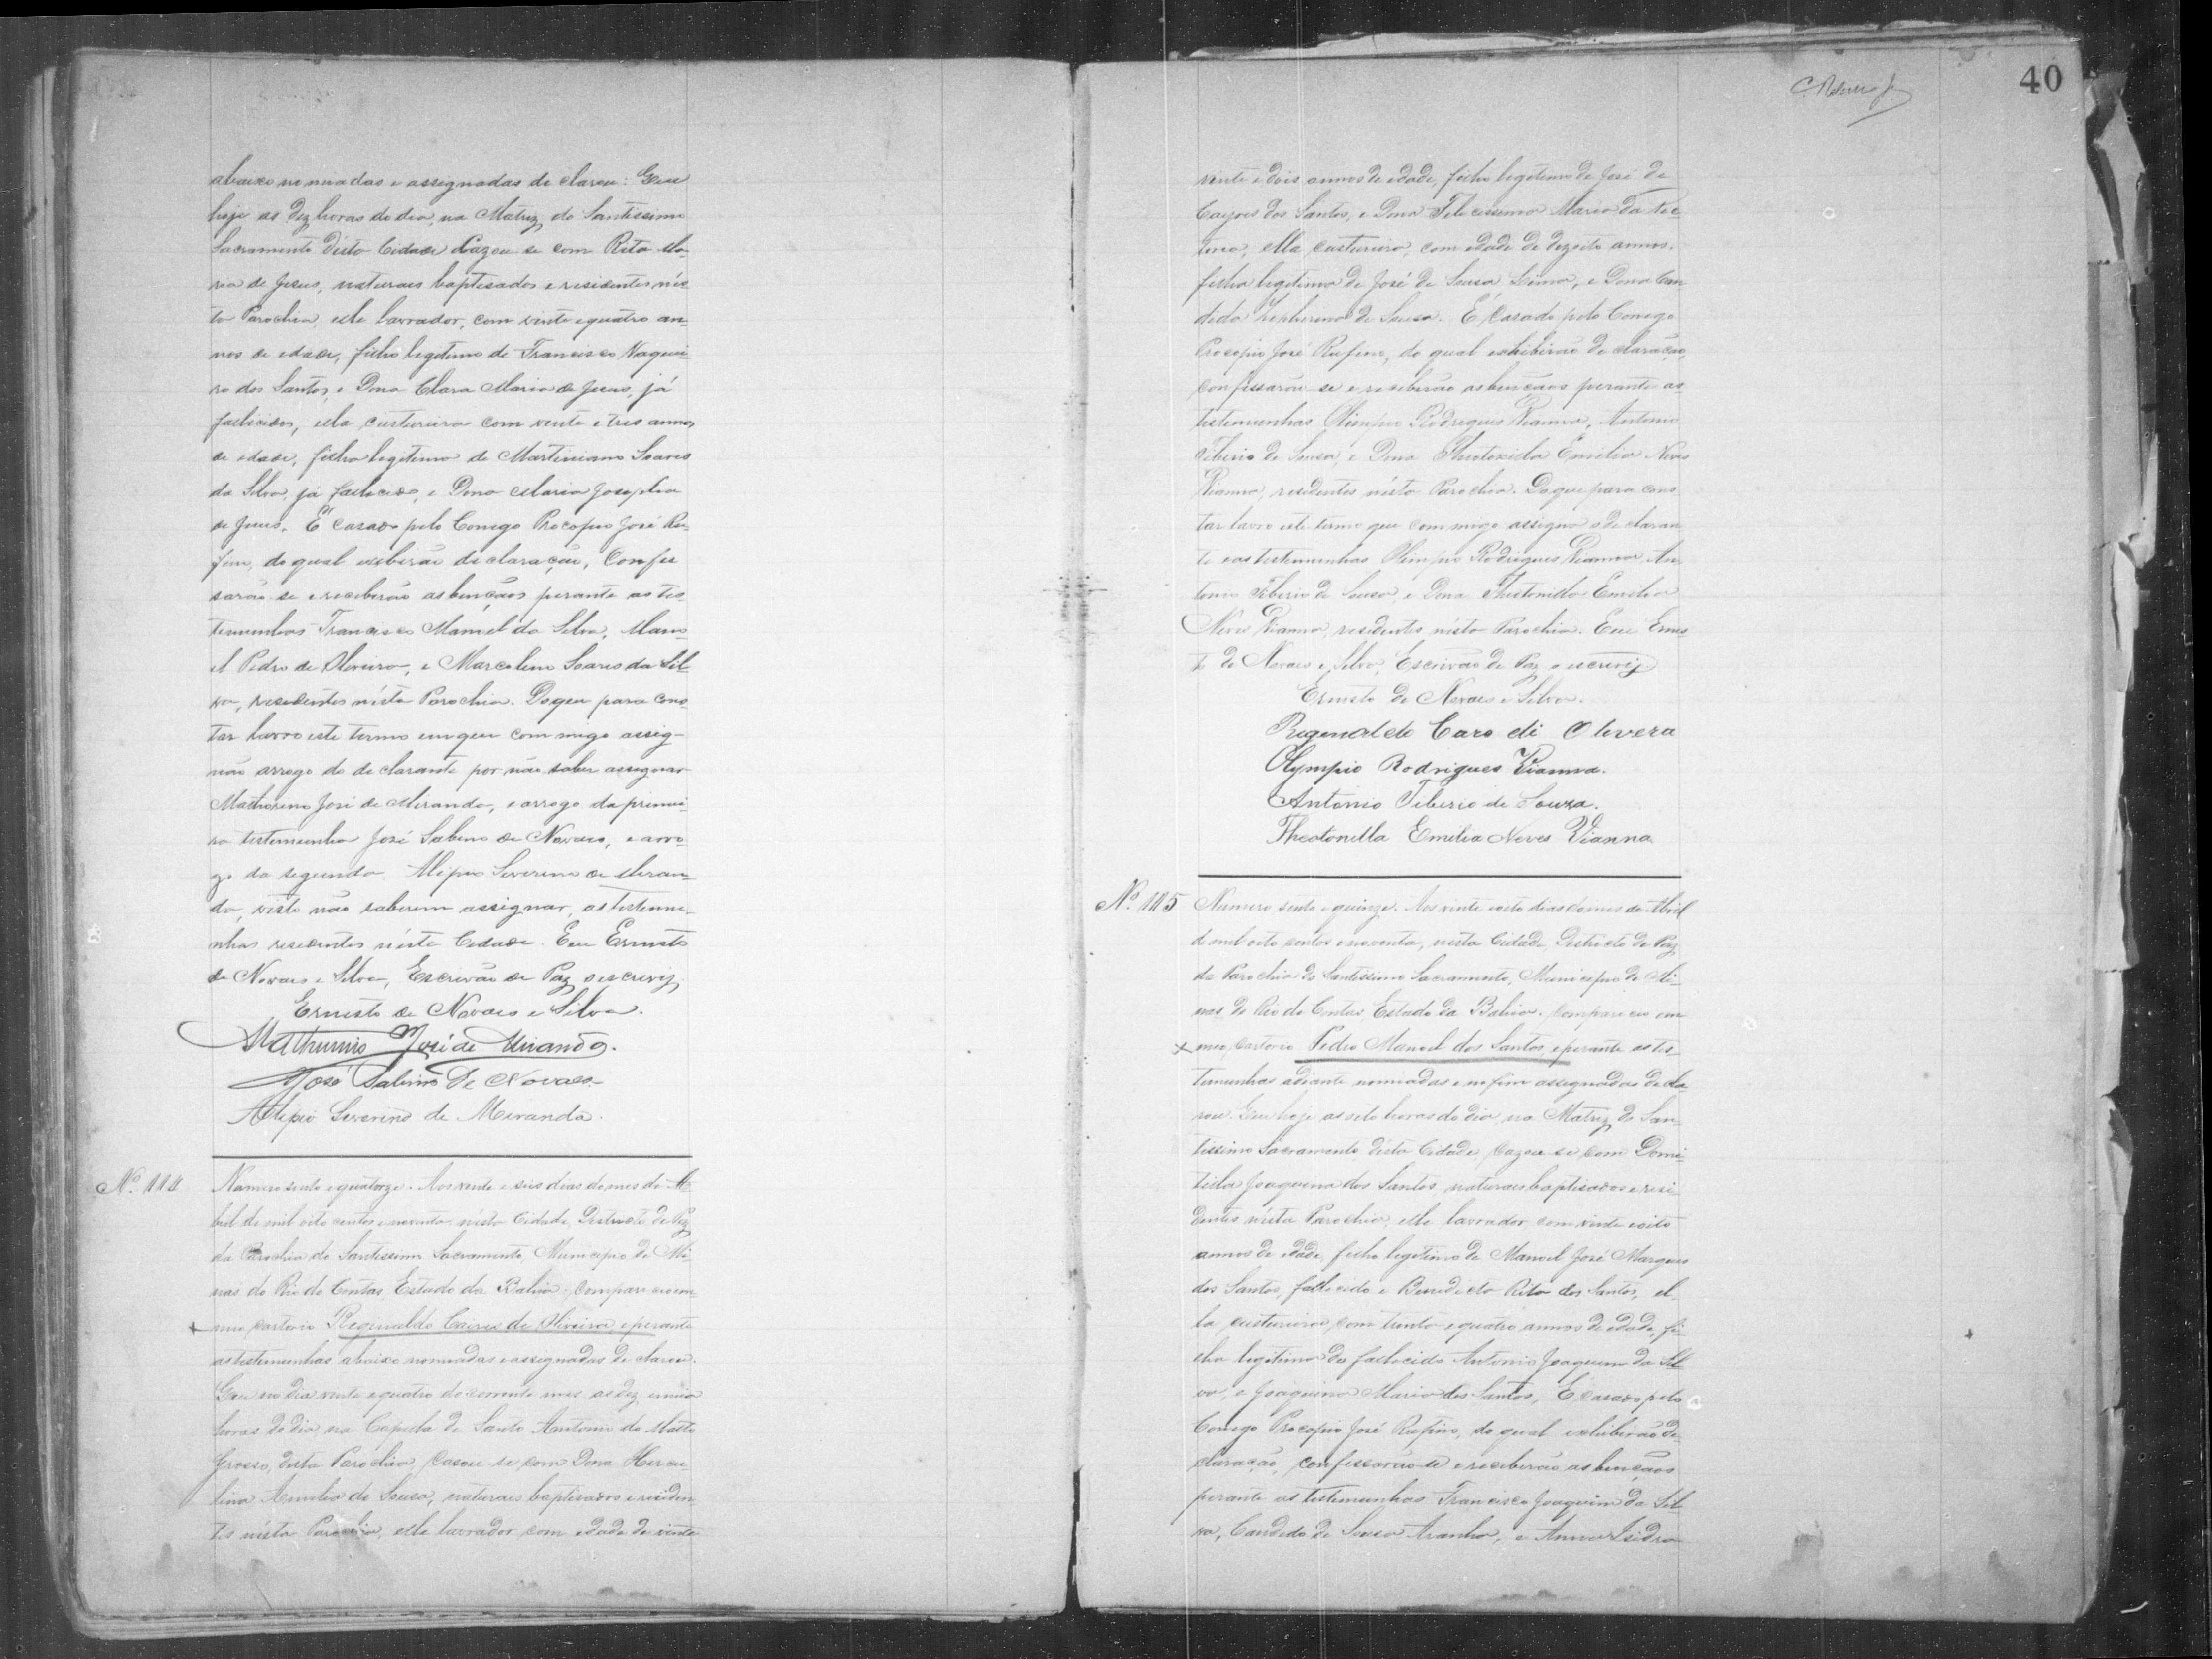 abaixo nomiadas e assignadas de clarou: Que
hoje as dez horas do dia, na Matriz do Santissimo
Sacramento désta Cidade Cazou se com Rita Ma-
ria de Jesus, naturaes baptisados e residentes nés
ta Parochia, elle lavrador, com vinte e quatro an-
nos de edade, filho legitimo de Francisco
dos Santos, e Dona Clara Maria de Jesus, já
fallicidos, ella custureira com vente e tres annos
de edade, filha legitima de Martiniano Soares
da Silva, já fallicido, e Dona Maria Josepha
de Jesus. É casado pelo Conego Procopio José Ru-
fino, do qual exibirão de claração, Confes
sarão se e receberão as bençãos perante as tes-
temunhas Francisco Manoel da Silva, Mano
el Pedro de Oliveira, e Marcolino Soares da Sil-
va, residentes nésta Parochia. Do que para cons
tar lavro este termo em que com migo assig-
não arrogo do de clarante por não saber assignar
Mathurino José de Miranda, e arrogo da primei-
ra testemunha José Sabino de Novaes, e arro-
go da segunda Alipio Severino de Miran-
da, visto não saberem assignar, as testemu-
nhas residentes nésta Cidade. Eu Ernesto
de Novaes e Silva, Escrivão de Paz o escreviz
Ernesto de Novaes e Silva.
Mathurino José de Miranda.
José Sabino de Novaes
Alipio Severino de Miranda.
No. 114 Numero sento e quatorze. Aos vente e seis dias do mes de A-
bril de mil oito centos e noventa, nésta Cidade, Destricto de Paz
da Parochia do Santissimo Sacramento, Municipio de Mi-
nas do Rio de Contas, Estado da Bahia, compareceo em
meo cartorio Reginaldo Caires de Oliveira, e perante
as testemunhas abaixo nomeadas e assignadas de clarou.
Que no dia vente e quatro do corrente mes, as dez e meia
horas do dia, na Capella de Santo Antonio do Matto
Grosso, désta Parochia, Casou se com Dona Hercu-
lina Amelia de Sousa, naturaes baptisados e residen
tes nésta Parochia, elle lavrador, com edade de vinte
40
vinte e dois annos de edade, filho legitimo de José de
Cayres dos Santos, e Dona Felicissima Maria da
ella custureira, com edade de dezoito annos.
filha legitima de José de Sousa Lima, e Dona Can
dida Zepherina de Sousa. É casado pelo Conego
Procopio José Rufino, do qual exhibirão de claração,
confessarão-se e receberão as bençãos perante as
testemunhas Olimpio Rodrigues Vianna, Antonio
Tiberio de Sousa, e Dona Theotonilla Emilia Neves
Vianna, residentes nésta Parochia. Do que para cons
tar lavro este termo que com migo assigna o de claran
te e as testemunhas Olimpio Rodrigues Vianna An
tonio Tiberio de Sousa, e Dona Theotonilla Emilia
Neves Vianna, residentes nésta Parochia. Eu Ernes
to de Novaes e Silva, Escrivão de Paz o escreviz
Ernesto de Novaes e Silva.
Reginaldo Cares di Olivera
Olympio Rodrigues Vianna.
Antonio Tiberio de Souza.
Theotonilla Emilia Neves Vianna
No. 115 Numero sento e quinze. Aos vinte e oito dias do mes de Abril
de mil oito centos e noventa, nésta Cidade, Destricto de Paz
da Parochia do Santissimo Sacramento, Municipio de Mi-
nas do Rio de Contas, Estado da Bahia. Compareceo em
meo cartorio Pedro Manoel dos Santos, e perante as tes-
temunhas adiante nomiadas e no fim assignadas de cla
rou. Que hoje as oito horas do dia, na Matriz do San-
tissimo Sacramento, désta Cidade, Cazou se com Domi-
tilla Joaquina dos Santos, naturaes baptisados e resi-
dentes nésta Parochia, elle lavrador com vinte e oito
annos de edade, filho legitimo de Manoel José Marques
dos Santos, fallecido e Benedicta Rita dos Santos, el-
la custureira, com trinta e quatro annos de edade, fi-
lha legitima do fallicido Antonio Joaquim da Sil
va, e Joaquina Maria dos Santos, É casado pelo
Conego Procopio José Rufino, do qual exhibirão de
claração, confessarão-se e receberão as bençãos
perante as testemunhas Francisco Joaquim da Sil
va, Candido de Sousa Aranha, e Anna Isidra